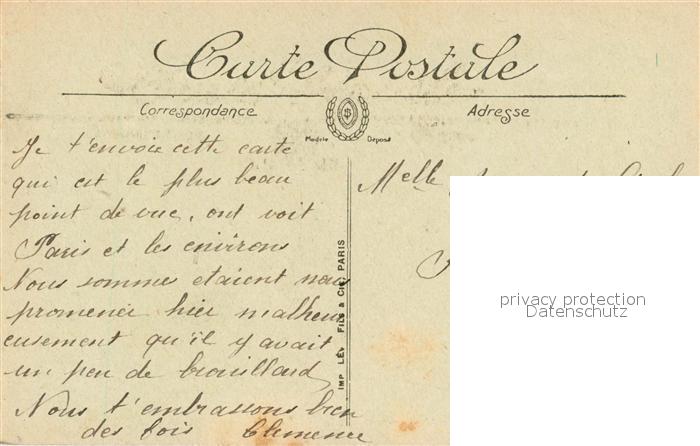 Carte Postale
Correspondance
Adresse
Modèle Déposé
Je t'envoie cette carte
qui est le plus beau
point de vue, ont voit
Paris et les environs
Nous somme etaient nous
promener hier malheur
eusement qu'il y avait
un peu de brouillard
Nous t'embrassons bien
des fois Clemence
IMP LÉV FILS & CIE PARIS
Melle
privacy protection
Datenschutz